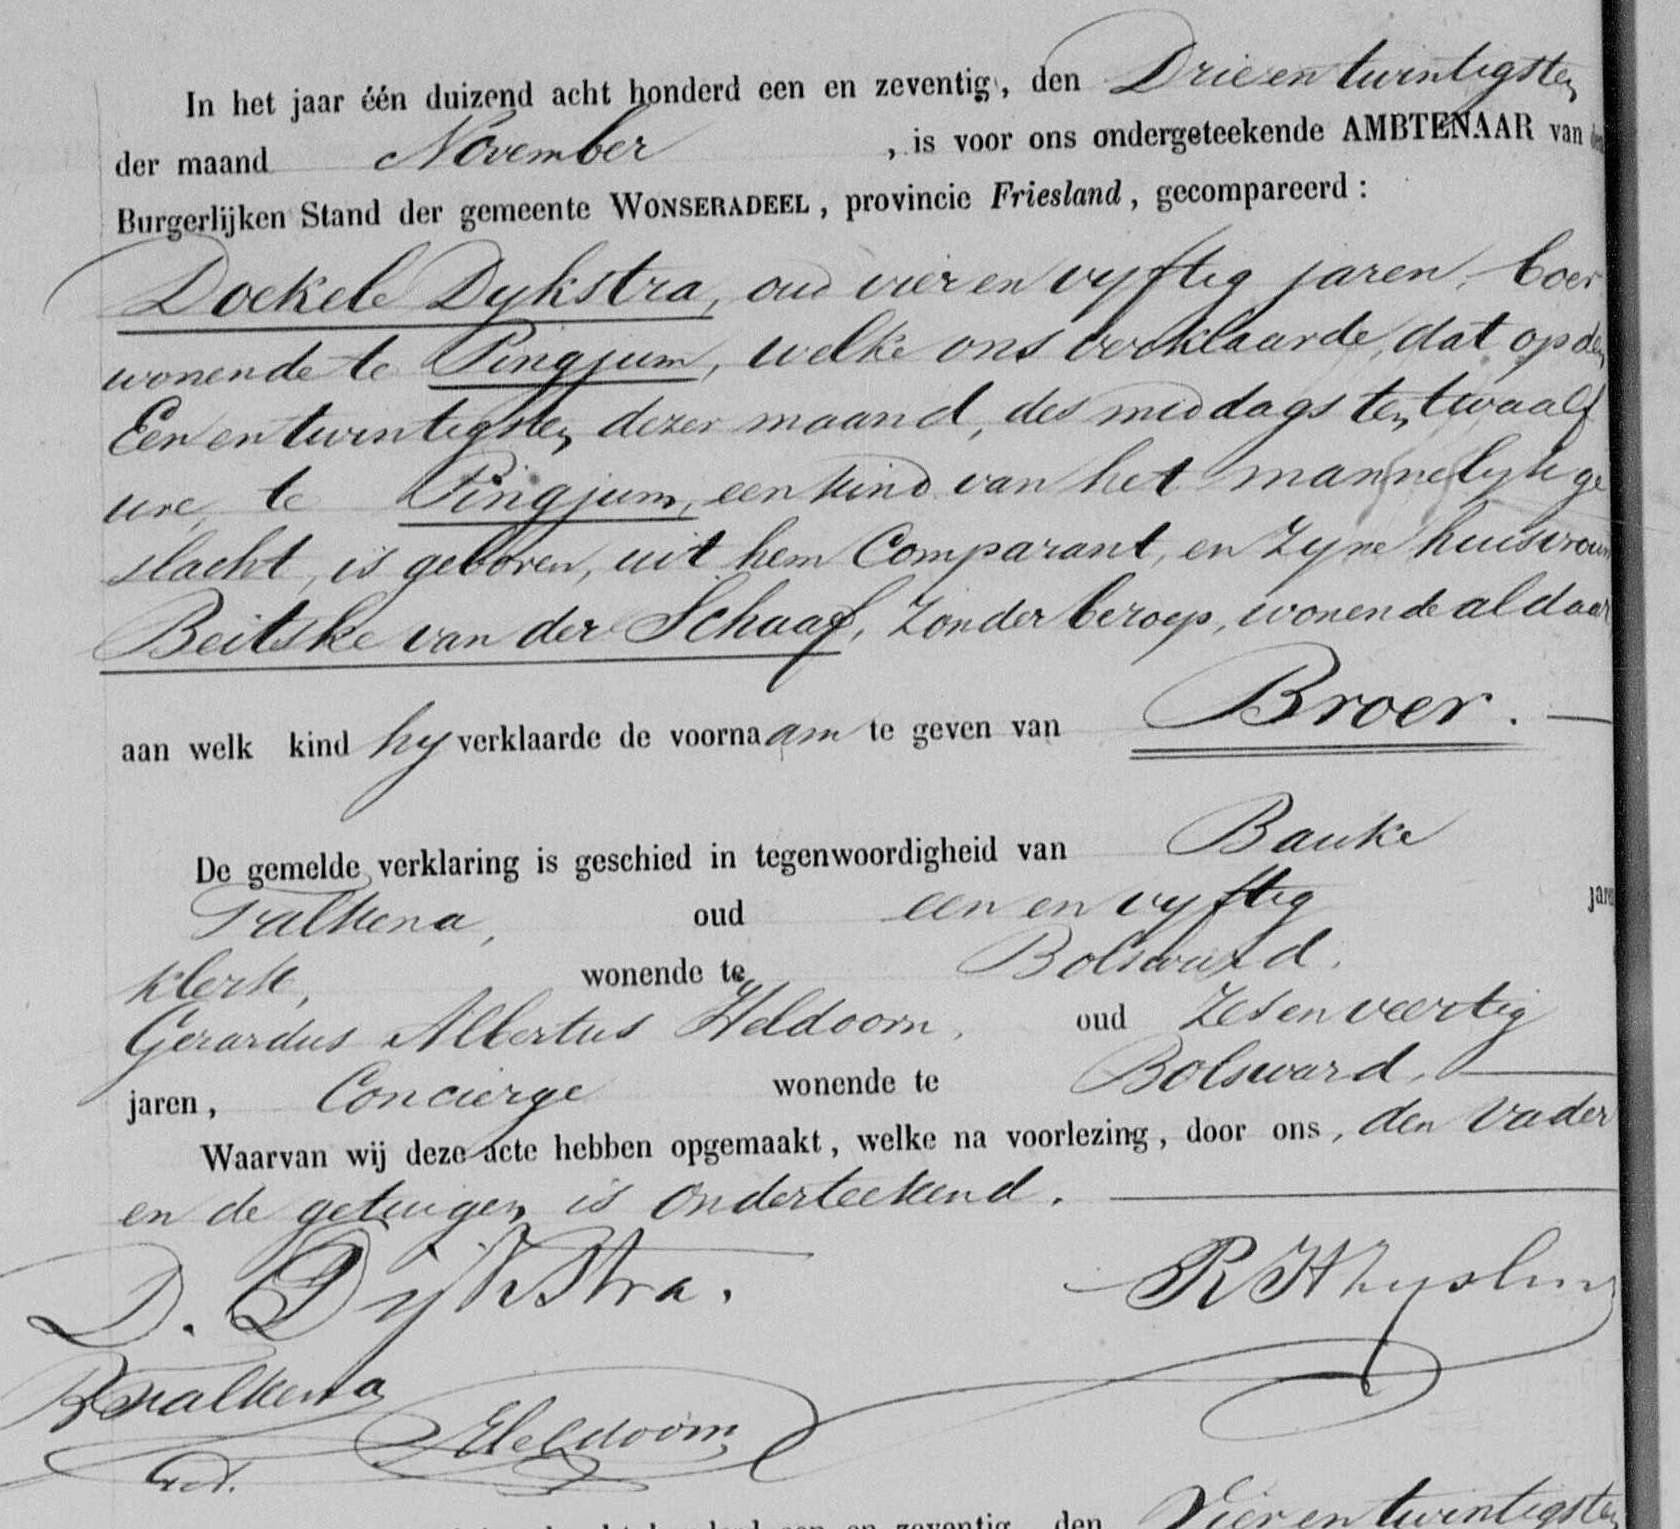 In het jaar één duizend acht honderd een en zeventig, den Drie en twintigsten
der maand November, is voor ons ondergeteekende AMBTENAAR van den
Burgerlijken Stand der gemeente WONSERADEEL, provincie Friesland, gecompareerd:
Doekele Dykstra, oud vier en vyftig jaren, boer
wonende te Pingjum, welke ons verklaarde, dat op den
Een en twintigsten dezer maand, des middags ten twaalf
ure, te Pingjum, een kind van het mannelyk ge
slacht, is geboren, uit hem Comparant, en zyne huisvrouw
Beitske van der Schaaf, zonder beroep, wonende aldaar
aan welk kind hy verklaarde de voornaam te geven van Broer.
De gemelde verklaring is geschied in tegenwoordigheid van Bauke
Tralkena, oud een en vyftig jaren
klerk, wonende te Bolsward.
Gerardus Albertus Heldoorn, oud zes en veertig
jaren, Concierge wonende te Bolsward,
Waarvan wij deze acte hebben opgemaakt, welke na voorlezing, door ons, den vader
en de getuigen is onderteekend.
D. Dijkstra.
Heldoorn
zeventig, den Vier en twintigsten